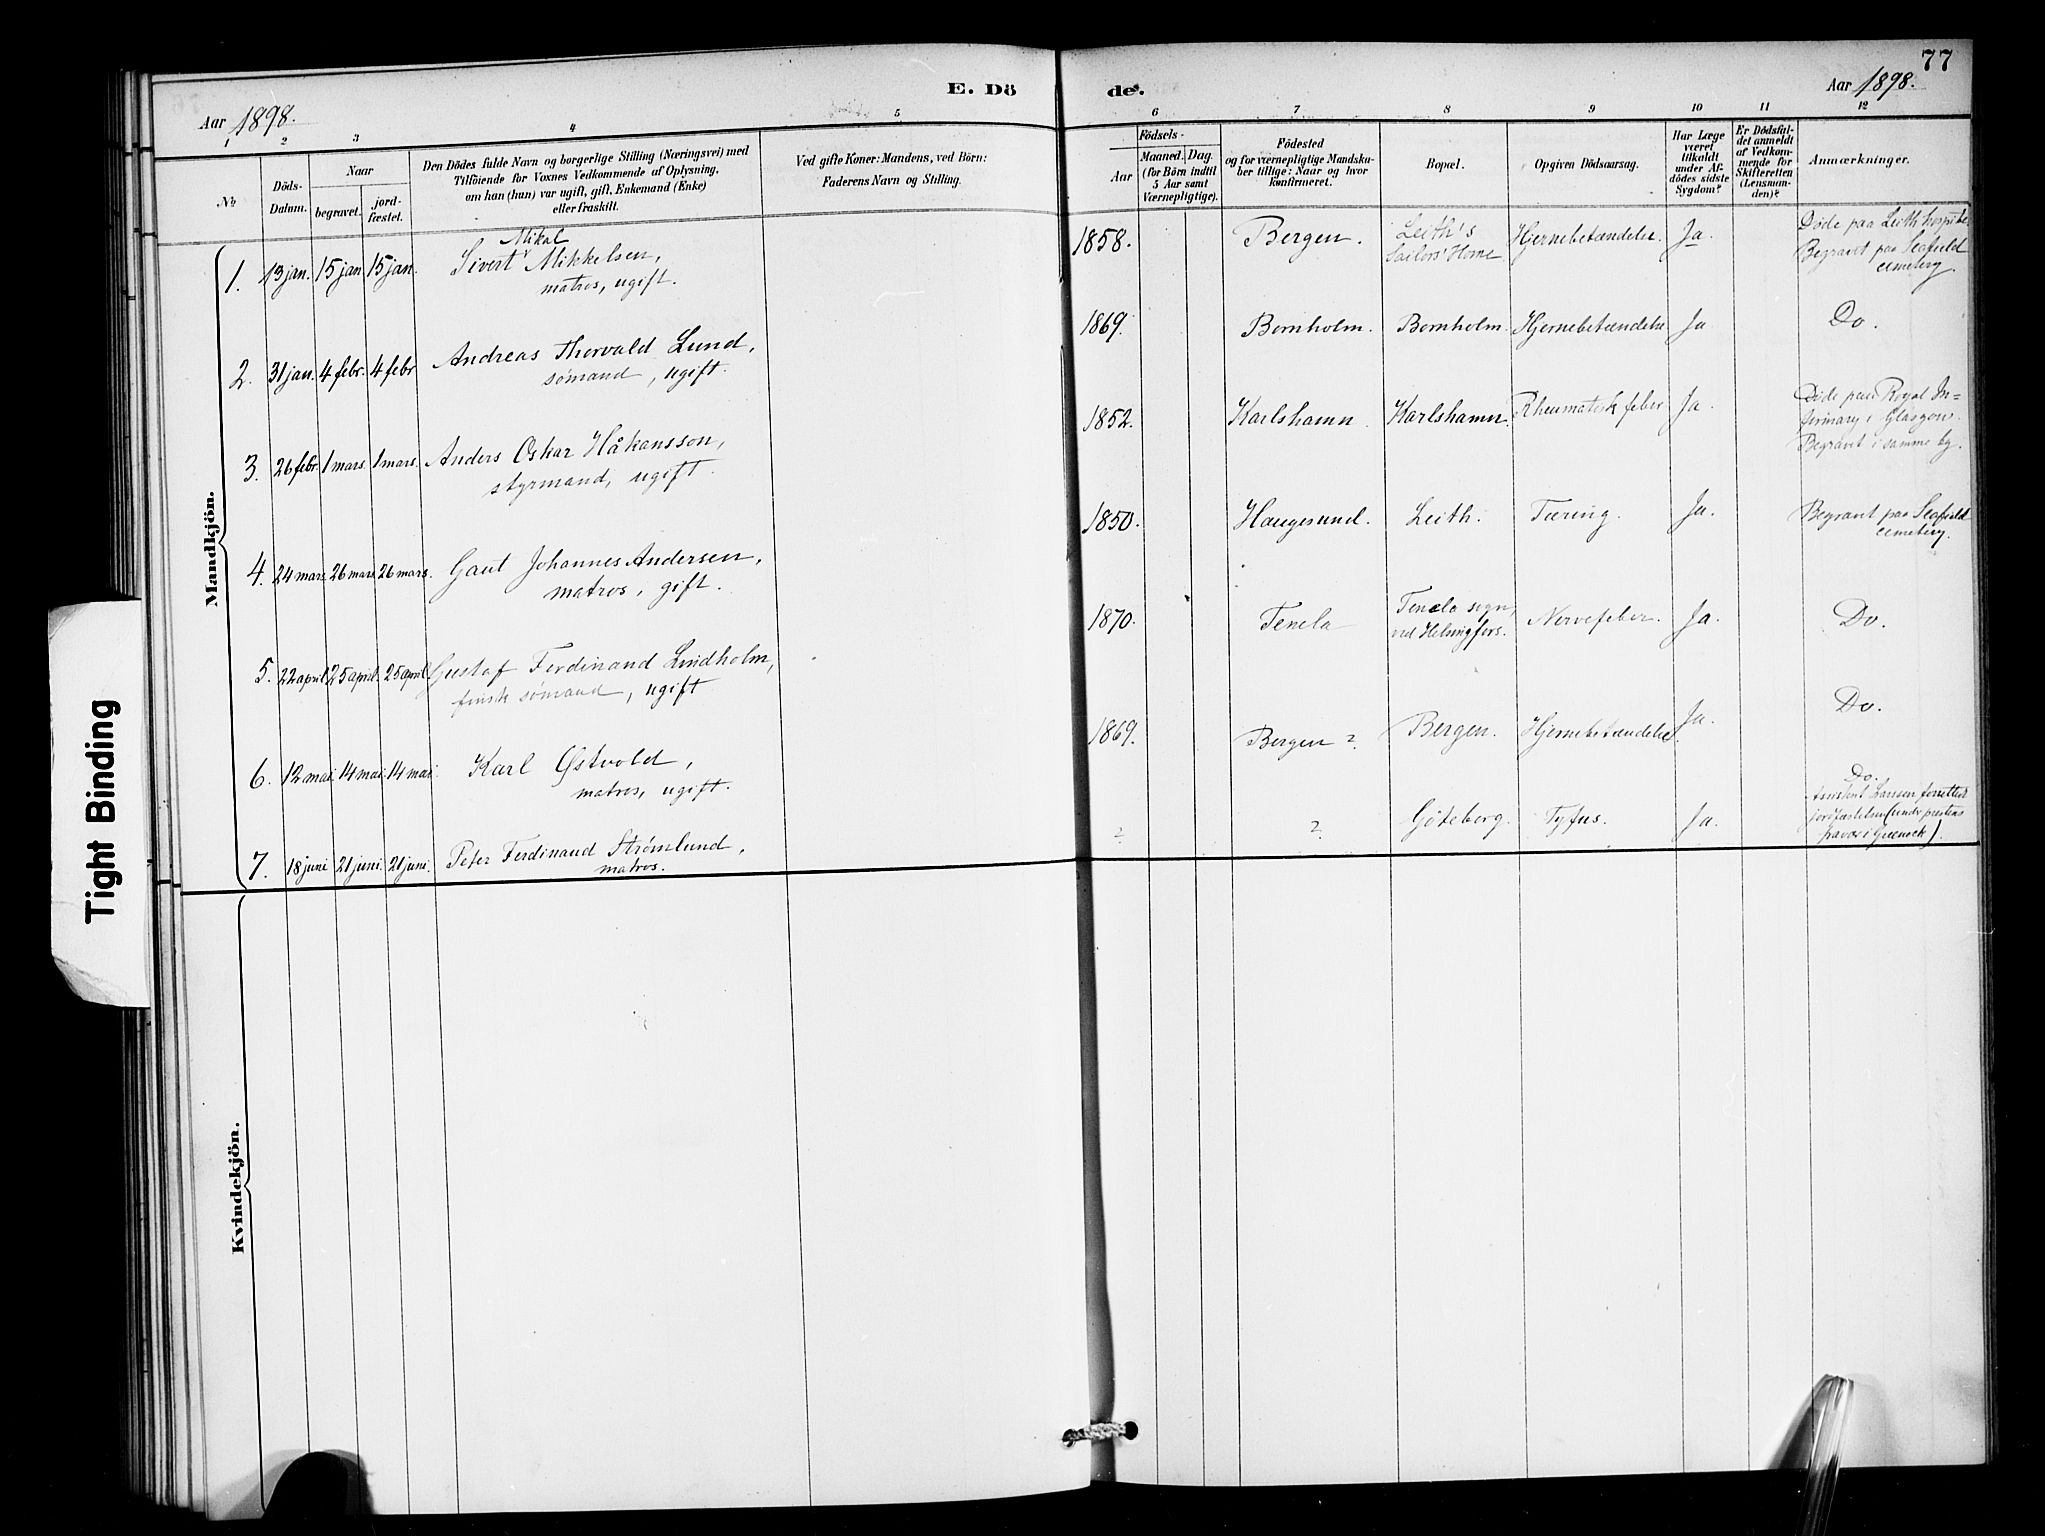 77
E. Döde.
Aar 1898.
Aar 1898.
1 2 3 4 5 6 7 8 9 10 11 12
No
Döds-
Datum.
Naar
begravet.
jord-
fæstet.
Den Dödes fulde Navn og borgerlige Stilling (Næringsvei) med
Tilföiende for Voxnes Vedkommende af Oplysning,
om han (hun) var ugift, gift, Enkemand (Enke)
eller fraskilt.
Ved gifte Koner: Mandens, ved Börn:
Faderens Navn og Stilling.
Födsels-
Aar
Maaned. Dag.
(for Börn indtil
5 Aar samt
Værnepligtige).
Födested
og for værnepligtige Mandska-
ber tillige: Naar og hvor
konfirmeret.
Bopæl.
Opgiven Dödsaarsag.
Har Læge
været
tilkaldt
under Af-
dödes sidste
Sygdom?
Er Dödsfal-
det anmeldt
af Vedkom-
mende for
Skifteretten
(Lensman-
den)?
Anmærkninger.
Mandkjön.
1. 13 jan. 15 jan 15 jan.
Mikal
Sivert Mikkelsen,
matros, ugift.
1858. Bergen.
Leith's
Sailors' Home
Hjernebetændelse. Ja.
Døde paa Leith hospital
Begravet paa Seafield
cemetery.
2. 31 jan. 4 febr. 4 febr
Andreas Thorvald Lund,
sømand, ugift.
1869. Bornholm. Bornholm. Hjernebetændelse Ja Do.
3. 26 febr. 1 mars. 1 mars.
Anders Oskar Håkansson,
styrmand, ugift.
1852. Karlshamn. Karlshamn. Rheumatisk feber Ja.
Døde paa Royal In-
firmary i Glasgow.
Begravet i samme by.
4. 24 mars. 26 mars. 26 mars.
Gaut Johannes Andersen,
matros, gift.
1850. Haugesund. Leith. Tæring. Ja.
Begravet paa Seafield
cemetery.
5. 22 april 25 april. 25 april
Gustaf Ferdinand Lindholm,
finsk sømand, ugift
1870. Tenela
Tenela sogn,
ved Helsingfors.
Nervefeber. Ja. Do.
6. 12 mai 14 mai 14 mai.
Karl Østvold,
matros, ugift.
1869. Bergen ?. Bergen. Hjernebetændelse. Ja. Do.
7. 18 juni 21 juni. 21 juni.
Peter Ferdinand Strømlund,
matros.
? ? Göteborg. Tyfus. Ja.
Do.
Assistent Larsen forrettet
jordfæstelsen (under prestens
fravær i Greenock).
Kvindekjön.
Tight Binding